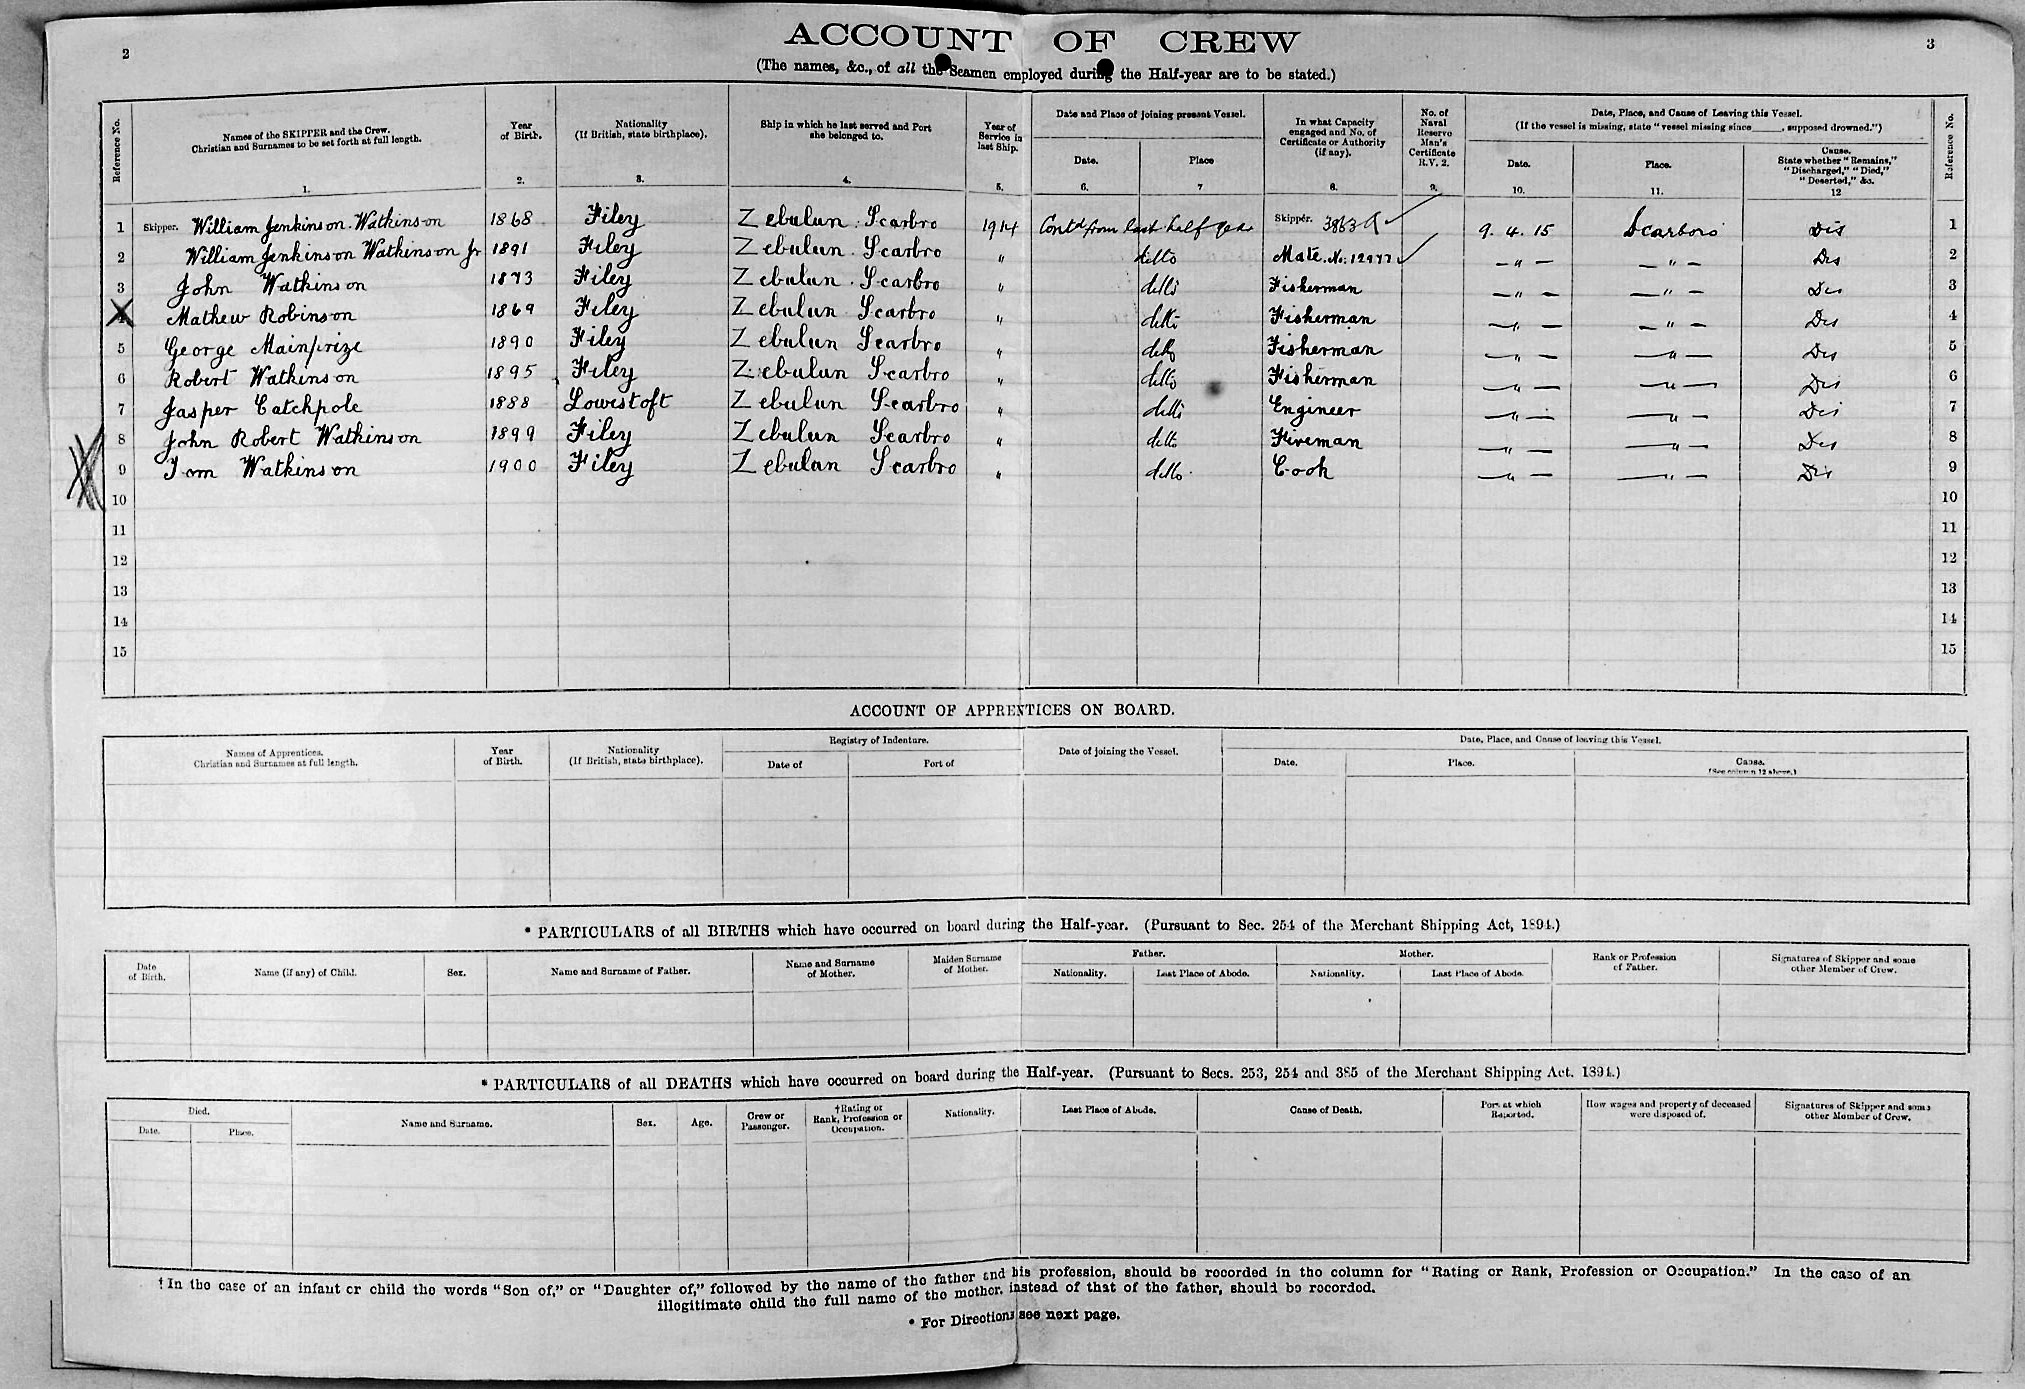 2
ACCOUNT OF CREW
3
(The names, &c., of all the Seamen employed during the Half-year are to be stated.)
Reference No.
Names of the SKIPPER and the Crew.
Christian and Surnames to be set forth at full length.
1.
Year
of Birth.
2.
Nationality
(If British, state birthplace).
3.
Ship in which he last served and Port
she belonged to.
4.
Year of
Service in
last Ship.
5.
Date and Place of joining present Vessel.
Date.
6.
Place
7
In what Capacity
engaged and No. of
Certificate or Authority
(if any).
8.
No. of
Naval
Reserve
Man's
Certificate
R.V. 2.
9.
Date, Place, and Cause of Leaving this Vessel.
(If the vessel is missing, state "vessel missing since_____, supposed drowned.")
Date.
10.
Place.
11.
Cause.
State whether "Remains,"
"Discharged," "Died,"
"Deserted," &c.
12
Reference No.
1 Skipper. William Jenkinson Watkinson 1868 Filey Zebulun. Scarbro 1914 Contd from last half year Skipper. 3863 9. 4. 15 Scarboro' Dis 1
2 William Jenkinson Watkinson Jr 1891 Filey Zebulun. Scarbro " ditto Mate. No. 12977 — " — — " — Dis 2
3 John Watkinson 1873 Filey Zebulun. Scarbro " ditto Fisherman — " — — " — Dis 3
4 Mathew Robinson 1869 Filey Zebulun Scarbro " ditto Fisherman — " — — " — Dis 4
5 George Mainprize 1890 Filey Zebulun Scarbro " ditto Fisherman — " — — " — Dis 5
6 Robert Watkinson 1895 Filey Zebulun Scarbro " ditto Fisherman — " — — " — Dis 6
7 Jasper Catchpole 1888 Lowestoft Zebulun Scarbro " ditto Engineer — " — — " — Dis 7
8 John Robert Watkinson 1899 Filey Zebulun Scarbro " ditto Fireman — " — — " — Dis 8
9 Tom Watkinson 1900 Filey Zebulun Scarbro " ditto. Cook — " — — " — Dis 9
10 10
11 11
12 12
13 13
14 14
15 15
ACCOUNT OF APPRENTICES ON BOARD.
Names of Apprentices.
Christian and Surnames at full length.
Year
of Birth.
Nationality
(If British, state birthplace).
Registry of Indenture.
Date of
Port of
Date of joining the Vessel.
Date, Place, and Cause of leaving this Vessel.
Date.
Place.
Cause.
(See column 12 above.)
* PARTICULARS of all BIRTHS which have occurred on board during the Half-year. (Pursuant to Sec. 254 of the Merchant Shipping Act, 1894.)
Date
of Birth.
Name (if any) of Child.
Sex.
Name and Surname of Father.
Name and Surname
of Mother.
Maiden Surname
of Mother.
Father.
Nationality.
Last Place of Abode.
Mother.
Nationality.
Last Place of Abode.
Rank or Profession
of Father.
Signatures of Skipper and some
other Member of Crew.
* PARTICULARS of all DEATHS which have occurred on board during the Half-year. (Pursuant to Secs. 253, 254 and 385 of the Merchant Shipping Act. 1894.)
Died.
Date.
Place.
Name and Surname.
Sex.
Age.
Crew or
Passenger.
†Rating or
Rank, Profession or
Occupation.
Nationality.
Last Place of Abode.
Cause of Death.
Port at which
Reported.
How wages and property of deceased
were disposed of.
Signatures of Skipper and some
other Member of Crew.
†In the case of an infant or child the words "Son of," or "Daughter of," followed by the name of the father and his profession, should be recorded in the column for "Rating or Rank, Profession or Occupation." In the case of an
illegitimate child the full name of the mother, instead of that of the father, should be recorded.
* For Directions see next page.